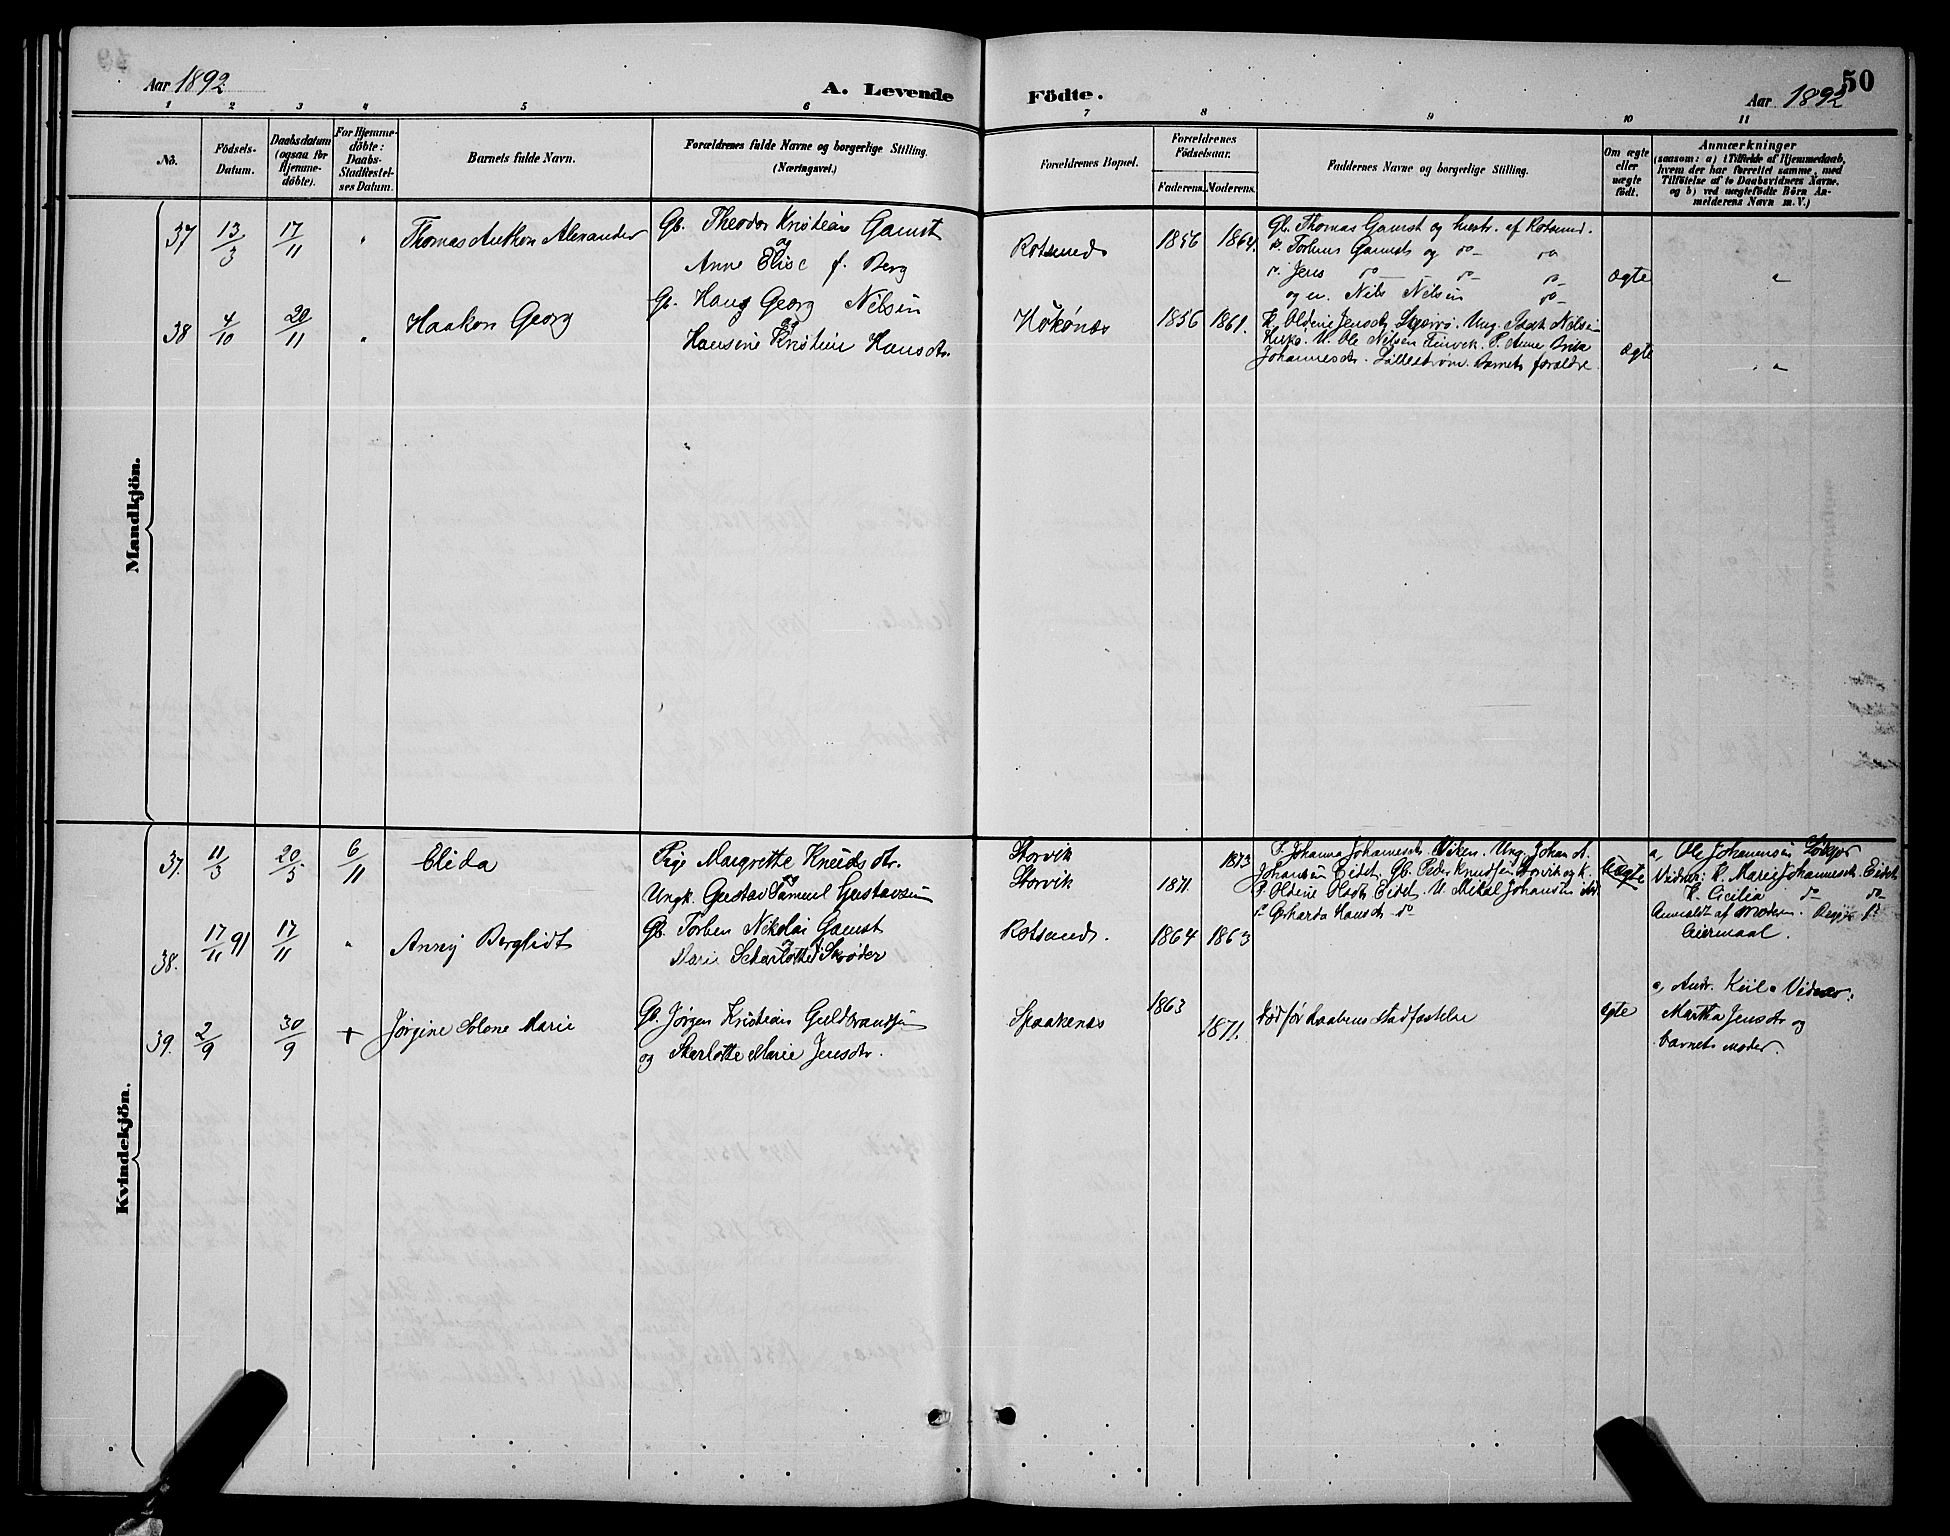 Aar 1892
A. Levende Födte.
Aar 1892
50
1 2 3 4 5 6 7 8 9 10 11
No.
Födsels-Datum.
Daabsdatum (ogsaa for Hjemmedöbte).
For Hjemmedöbte: Daabs-Stadfæstelses Datum.
Barnets fulde Navn.
Forældrenes fulde Navne og borgerlige Stilling. (Næringsvei.)
Forældrenes Bopæl.
Forældrenes Födselsaar.
Faderens. Moderens.
Faddernes Navne og borgerlige Stilling.
Om ægte eller uægte födt.
Anmærkninger
(saasom: a) i Tilfælde af Hjemmedaab,
hvem der har forrettet samme, med
Tilföielse af to Daabsvidners Navne.
og b) ved uægtefödte Börn Anmelderens Navn m.V.)
Mandkjön.
37 13/3 17/11 " Thomas Anthon Alexander
Gb. Theodor Kristian Gamst
og
Anne Elise f. Berg
Rotsund 1856 1864.
Gb. Thomas Gamst og hustr. af Rotsund.
do. Torbens Gamst og do do
do. Jens do do do
og en. Nils Nilsen do
ægte "
38 4/10 20/11 " Haakon Georg
Gb. Hans Georg Nilsen
og
Hansine Kristine Hansdtr.
Hökönæs 1856 1861.
K. Oldine Jensdtr. Skjærvö. Ung. Nilsen
U. Ole Nilsen P. Anne
Johannesdtr. Lillestrøm. Barnets forældre.
ægte "
Kvindekjön.
37. 11/3 20/5 6/11 Elida
Pige Margrethe Knudsdtr.
og
Ungk. Gustav Samuel Gustavsen
Storvik
Storvik 1871. 1873
P. Johanna Johannesdtr. Viken. Ung. Johan A.
Johansen Eidet. Gb. Peder Knudsen Storvik og K.
P. Oldine Eidet. U. Mikal Johansen
do Gerharda Hansdtr do
Uægte
a, Ole Johannesen
Vidner: K. Marie Johannesdtr. Eidet
K. Cicilia do do
Anmeldt af Moderen.
Leiermaal.
38. 17/11 91 17/11 " Anny Bergliot
Gb. Torben Nikolai Gamst
og
Marie Scharlotte Skrøder
Rotsund. 1864 1863
39. 2/9 30/9 + Jørgine Solone Marie
Gb. Jørgen Kristian Guldbrandsen
og Skarlotte Marie Jensdtr.
Spaakenæs 1863 1871.
død før Daabens stadfæstelse
ægte
a, Andr. Kiil. Vidner:
Martha Jensdtr og
barnets moder.